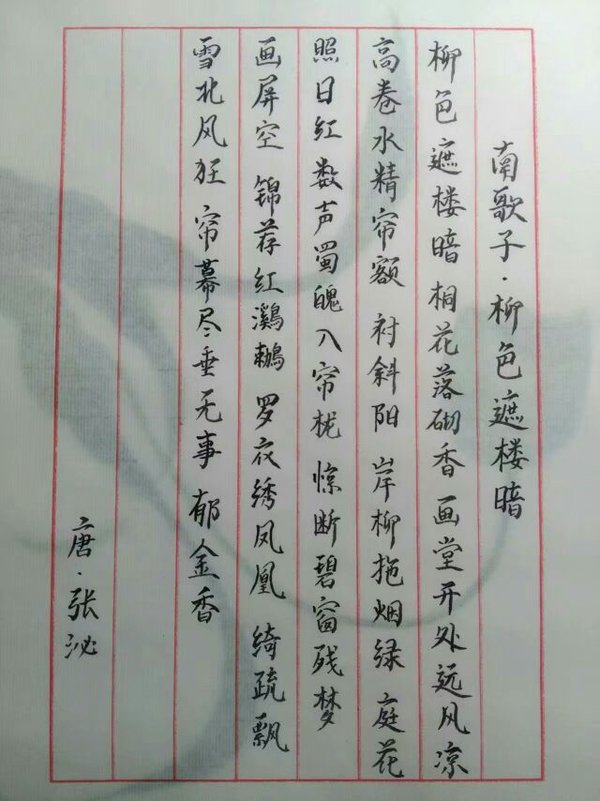 南歌子·柳色遮楼暗
柳色遮楼暗 桐花落砌香 画堂开处远风凉
高卷水精帘额 衬斜阳 岸柳拖烟绿 庭花
照日红 数声蜀魄入帘栊 惊断碧窗残梦
画屏空 锦荐红鸂鶒 罗衣绣凤凰 绮疏飘
雪北风狂 帘幕尽垂无事 郁金香
唐·张泌